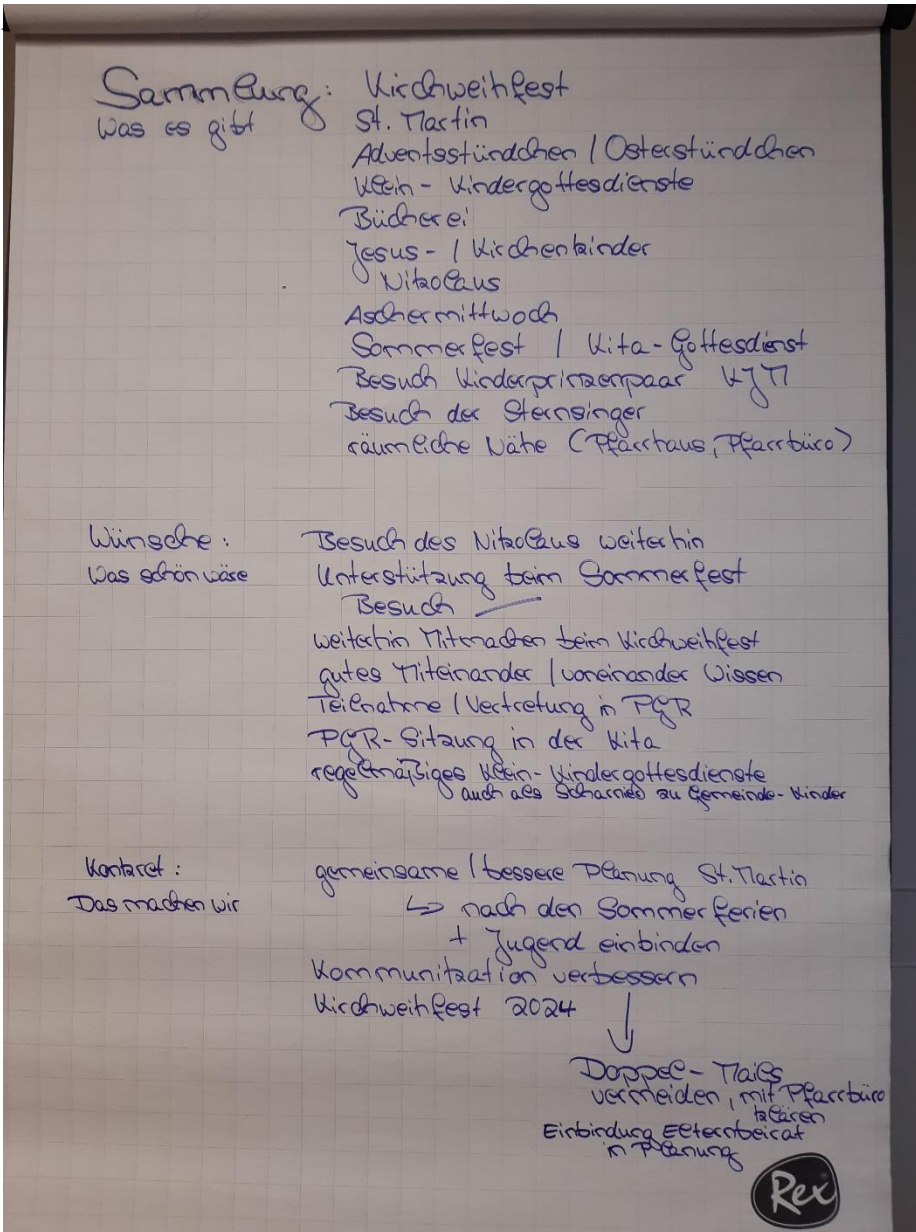 Sammlung: Kirchweihfest
Was es gibt St. Martin
Adventsstündchen / Osterstündchen
Klein-Kindergottesdienste
Bücherei
Jesus- / Kirchenkinder
Nikolaus
Aschermittwoch
Sommerfest / Kita-Gottesdienst
Besuch Kinderprinzenpaar KJM
Besuch der Sternsinger
räumliche Nähe (Pfarrhaus, Pfarrbüro)
Wünsche: Besuch des Nikolaus weiterhin
Was schön wäre Unterstützung beim Sommerfest
Besuch
weiterhin Mitmachen beim Kirchweihfest
gutes Miteinander / voneinander Wissen
Teilnahme / Vertretung in PGR
PGR-Sitzung in der Kita
regelmäßiges Klein-Kindergottesdienste
auch als Scharnier zu Gemeinde-Kinder
Konkret: gemeinsame / bessere Planung St. Martin
Das machen wir ↳ nach den Sommerferien
+ Jugend einbinden
Kommunikation verbessern
Kirchweihfest 2024
Doppel-Mails
vermeiden, mit Pfarrbüro
klären
Einbindung Elternbeirat
in Planung
Rex